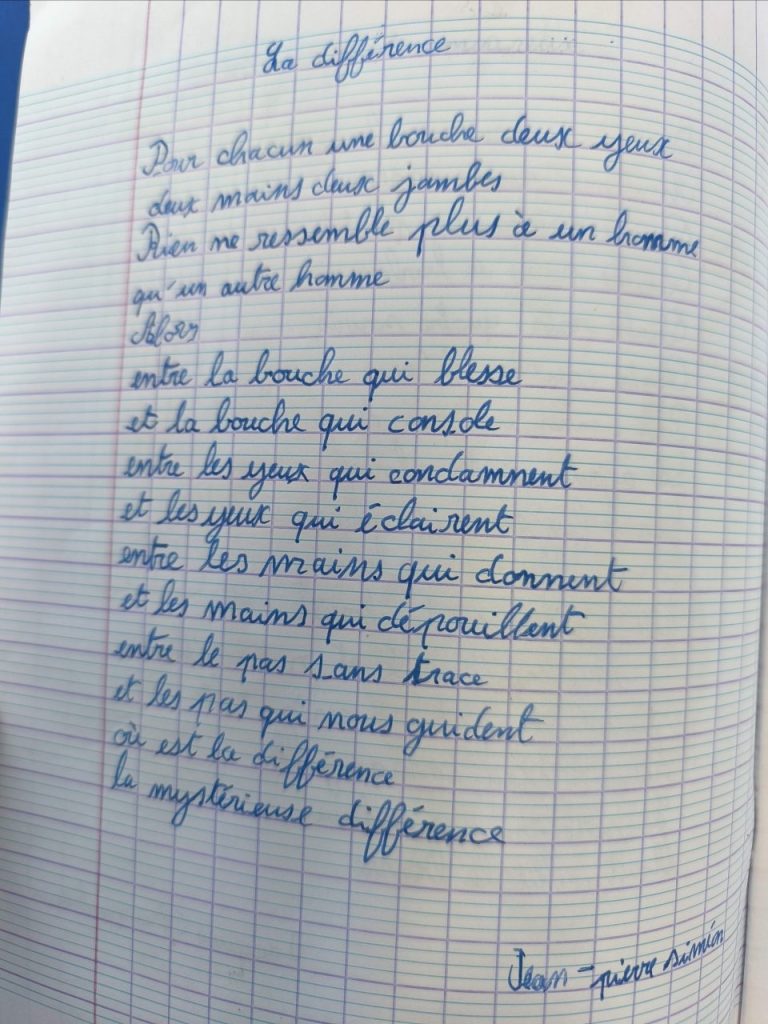 La différence
Pour chacun une bouche deux yeux
deux mains deux jambes
Rien ne ressemble plus à un homme
qu'un autre homme
Alors
entre la bouche qui blesse
et la bouche qui console
entre les yeux qui condamnent
et les yeux qui éclairent
entre les mains qui donnent
et les mains qui dépouillent
entre le pas sans trace
et les pas qui nous guident
où est la différence
la mystérieuse différence
Jean-pierre siméon